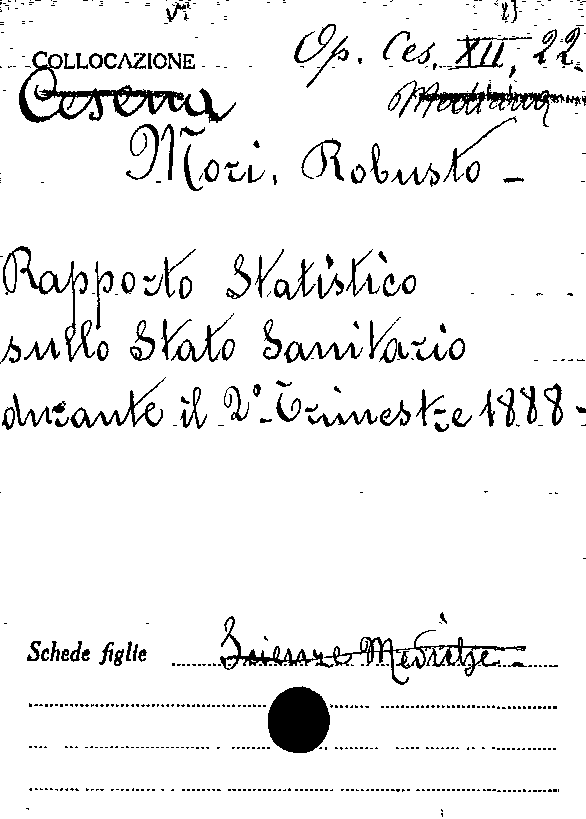 COLLOCAZIONE Op. Ces. XII, 22.
Cesena
Mori, Robusto -
Rapporto Statistico
sullo Stato Sanitario
durante il 2° Trimestre 1888 -
Schede figlie Scienze Mediche -